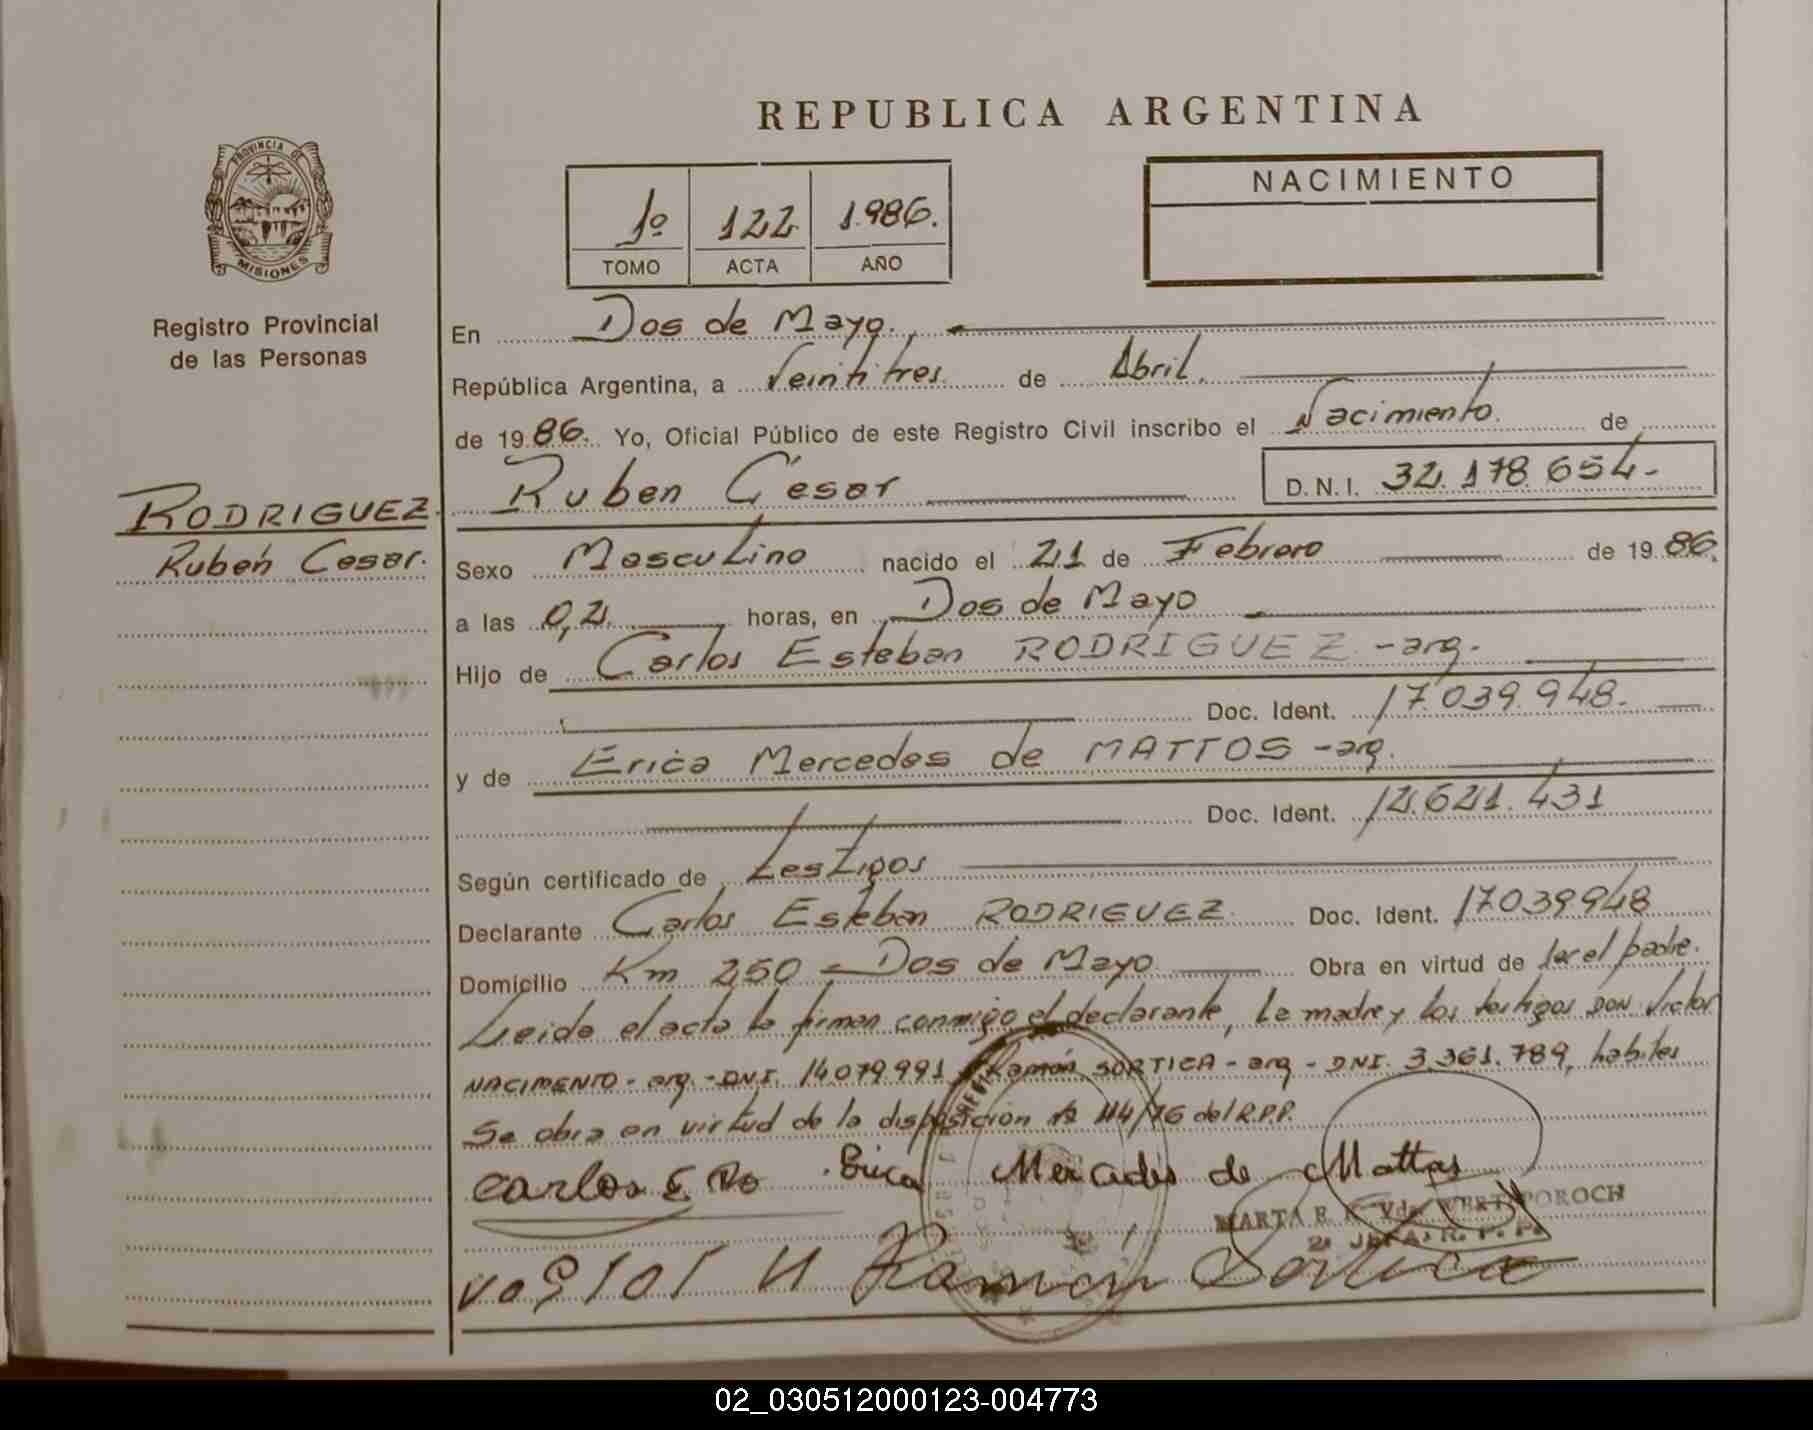 REPUBLICA ARGENTINA
PROVINCIA DE
MISIONES
Registro Provincial
de las Personas
1º 122 1.986.
TOMO ACTA AÑO
NACIMIENTO
En Dos de Mayo.
República Argentina, a Veintitres de Abril.
de 1986. Yo, Oficial Público de este Registro Civil inscribo el Nacimiento. de
Ruben Cesar D.N.I. 32.178.654-
RODRIGUEZ.
Rubén Cesar.
Sexo Masculino nacido el 21 de Febrero de 1986.
a las 0,2. horas, en Dos de Mayo
Hijo de Carlos Esteban RODRIGUEZ -arg.
Doc. Ident. 17.039.948.
y de Erica Mercedes de MATTOS -arg.
Doc. Ident. 12.621.431
Según certificado de testigos
Declarante Carlos Esteban RODRIGUEZ. Doc. Ident. 17039948
Domicilio Km 250 - Dos de Mayo Obra en virtud de ser el padre.
Leida el acta la firman conmigo el declarante, la madre y los testigos DON Victor
NACIMENTO - arg. - DNI. 14079991 y Ramón SORTICA - arg - DNI. 3.361.789, habiles
Se obra en virtud de la disposición nº 114/76 del R.P.P.
Carlos E. Ro Erica Mercedes de Mattos
MARTA E. Vda.
2º JEFA R.P.P.
Ramon Sortica
02_030512000123-004773